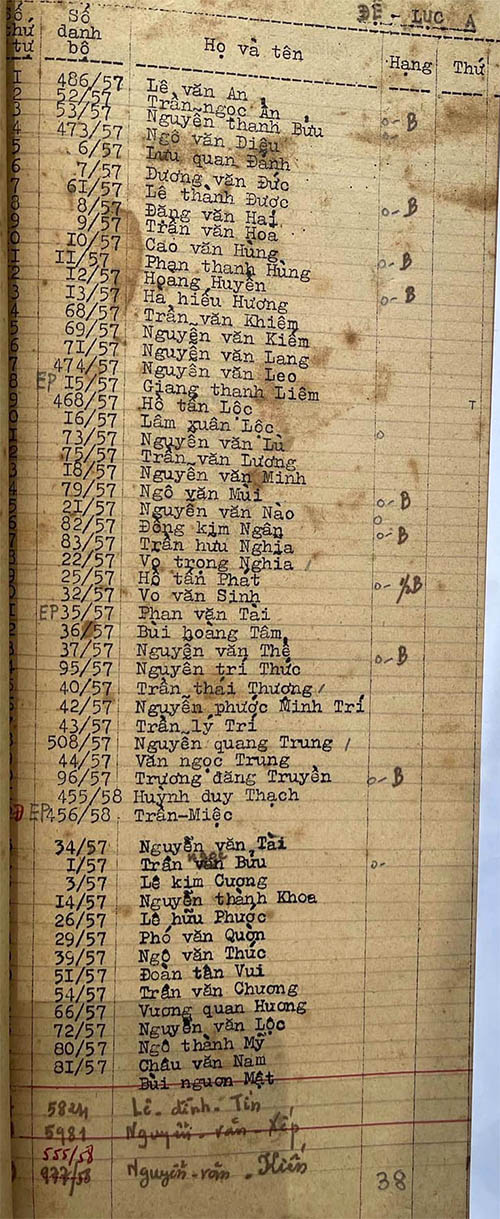 ĐỆ - LỤC A
Số thứ tự Số danh bộ Họ và tên Hạng Thứ
1 486/57 Lê văn An
2 52/57 Trần ngọc Ẩn
3 53/57 Nguyễn thanh Bửu o- B
4 473/57 Ngô văn Diệu o-
5 6/57 Lưu quan Đảnh
6 7/57 Dương văn Đức
7 61/57 Lê thành Được
8 8/57 Đặng văn Hai o- B
9 9/57 Trần văn Hoa
0 10/57 Cao văn Hùng
1 11/57 Phan thanh Hùng o- B
2 12/57 Hoàng Huyền
3 13/57 Hà hiếu Hương o- B
4 68/57 Trần văn Khiêm
5 69/57 Nguyễn văn Kiếm
6 71/57 Nguyễn văn Lang
7 474/57 Nguyễn văn Leo
8 EP 15/57 Giang thanh Liêm
9 468/57 Hồ tấn Lộc T
0 16/57 Lâm xuân Lộc
1 73/57 Nguyễn văn Lù o
2 75/57 Trần văn Lương
3 18/57 Nguyễn văn Minh
4 79/57 Ngô văn Mùi
5 21/57 Nguyễn văn Nào o- B
6 82/57 Đồng kim Ngân o
7 83/57 Trần hữu Nghĩa o- B
8 22/57 Vo trọng Nghĩa /
9 25/57 Hồ tấn Phát o- ½B
0 32/57 Vo văn Sinh
1 EP 35/57 Phan văn Tài
2 36/57 Bùi hoàng Tâm
37/57 Nguyễn văn Thế
95/57 Nguyễn trí Thức o- B
40/57 Trần thái Thượng /
42/57 Nguyễn phước Minh Trí
43/57 Trần lý Trí
508/57 Nguyễn quang Trung /
44/57 Văn ngọc Trung
96/57 Trương đăng Truyền o- B
455/58 Huỳnh duy Thạch
EP 456/58 Trần-Miệc
34/57 Nguyễn văn Tài
1/57 Trần văn Bửu o-
ngọc
3/57 Lê kim Cương
14/57 Nguyễn thành Khoa
26/57 Lê hữu Phước
29/57 Phó văn Quờn
39/57 Ngô văn Thức
51/57 Đoàn tân Vui
54/57 Trần văn Chương
66/57 Vương quan Hương
72/57 Nguyễn văn Lộc
80/57 Ngô thành Mỹ
81/57 Châu văn Nam
Bùi nguơn Mật
Lê-đình-Tín
5981 Nguyễn-văn-Xếp
555/58
977/58 Nguyễn-văn-Hiền 38